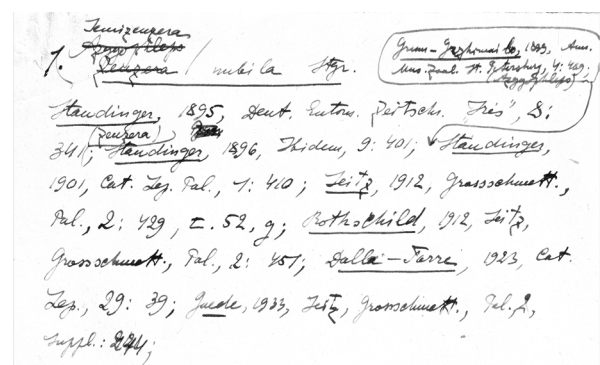 Semizeuzera
1. Zeuzera / nubila Stgr.
Grum-Grshimailo, 1899, Ann.
Mus. Zool. St. Petersburg, 4: 469.
Staudinger, 1895, Deut. Entom. Zeitsch. "Iris", 8:
(zeuzera)
341; Staudinger, 1896, Ibidem, 9: 401; Staudinger,
1901, Cat. Lep. Pal., 1: 410; Seitz, 1912, Grossschmett.,
Pal., 2: 429, t. 52, g; Rothschild, 1912, Seitz,
Grossschmett., Pal., 2: 451; Dalla-Torre, 1923, Cat.
Lep., 29: 39; Gaede, 1933, Seitz, Grossschmett., Pal. 2,
Suppl.: